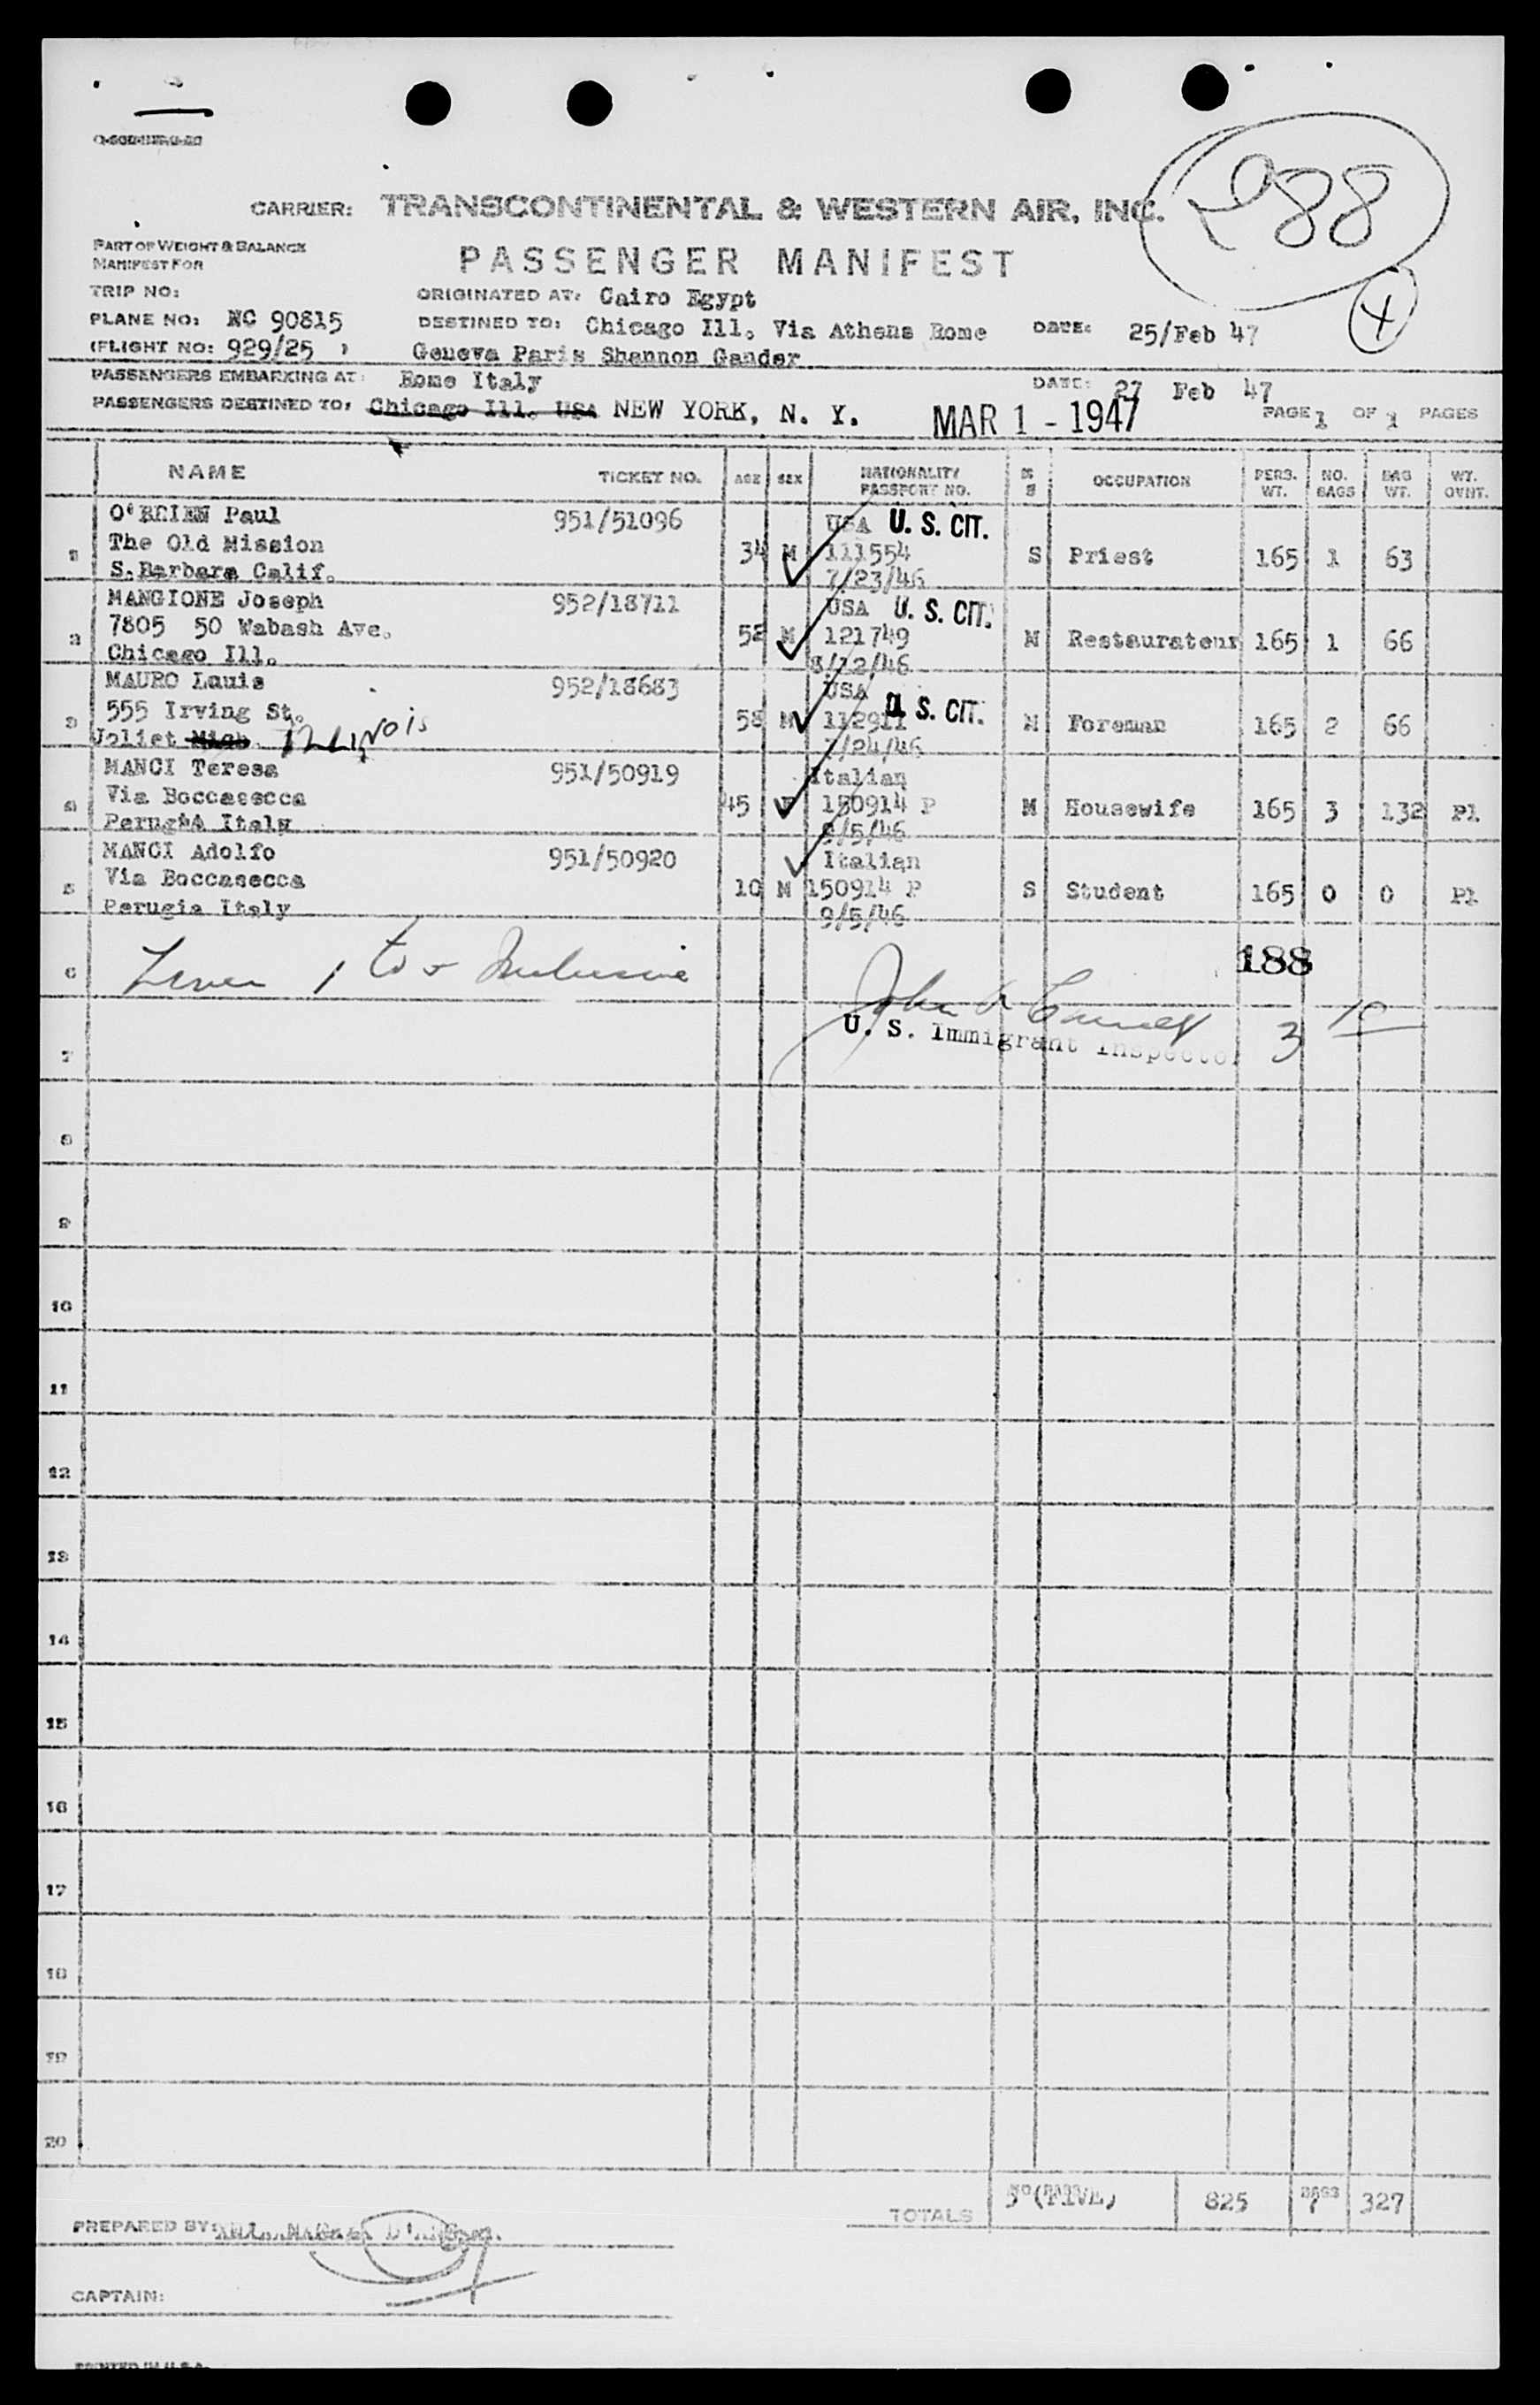 288
CARRIER: TRANSCONTINENTAL & WESTERN AIR, INC.
PART OF WEIGHT & BALANCE
MANIFEST FOR
PASSENGER MANIFEST
4
TRIP NO:
ORIGINATED AT: Cairo Egypt
PLANE NO: NC 90815
DESTINED TO: Chicago Ill. Via Athens Rome DATE: 25/Feb 47
(FLIGHT NO: 929/25 )
Geneva Paris Shannon Gander
PASSENGERS EMBARKING AT: Rome Italy DATE: 27 Feb 47
PASSENGERS DESTINED TO: Chicago Ill. USA NEW YORK, N. Y. MAR 1 - 1947 PAGE 1 OF 1 PAGES
NAME TICKET NO. AGE SEX NATIONALITY PASSPORT NO. M S OCCUPATION PERS. WT. NO. BAGS BAG WT. WT. OVHT.
O'BRIEN Paul 951/51096 USA U. S. CIT.
1 The Old Mission 34 M 111554 S Priest 165 1 63
S.Barbara Calif. 7/23/46
MANGIONE Joseph 952/18711 USA U. S. CIT.
2 7805 50 Wabash Ave. 52 M 121749 M Restaurateur 165 1 66
Chicago Ill. 8/12/46
MAURO Lauis 952/18683 USA U. S. CIT.
3 555 Irving St. 58 M 112911 M Foreman 165 2 66
Joliet Mich ILLINOIS 7/24/46
MANCI Teresa 951/50919 Italian
4 Via Boccasecca 45 F 150914 P M Housewife 165 3 132 Pl
Perugia Italy 9/5/46
MANCI Adolfo 951/50920 Italian
5 Via Boccasecca 10 M 150914 P S Student 165 0 0 Pl
Perugia Italy 9/5/46
6 1 to 5 Inclusive 188
John
U. S. Immigrant Inspector 3 10
7
8
9
10
11
12
13
14
15
16
17
18
19
20
TOTALS 5 (FIVE) 825 BAGS 7 327
PREPARED BY:
CAPTAIN:
PRINTED IN U.S.A.